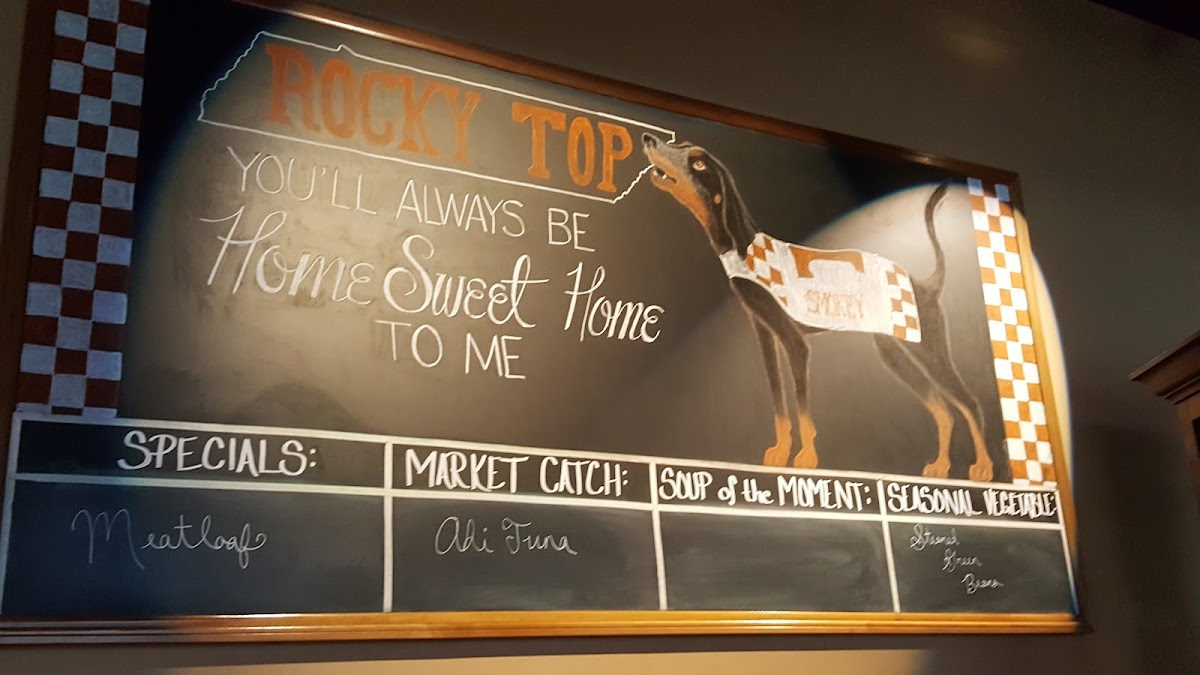 ROCKY TOP
YOU'LL ALWAYS BE
Home Sweet Home
TO ME
SMOKEY
SPECIALS:
MARKET CATCH:
SOUP of the MOMENT:
SEASONAL VEGETABLE:
Meatloaf
Ahi Tuna
Steamed
Green
Beans